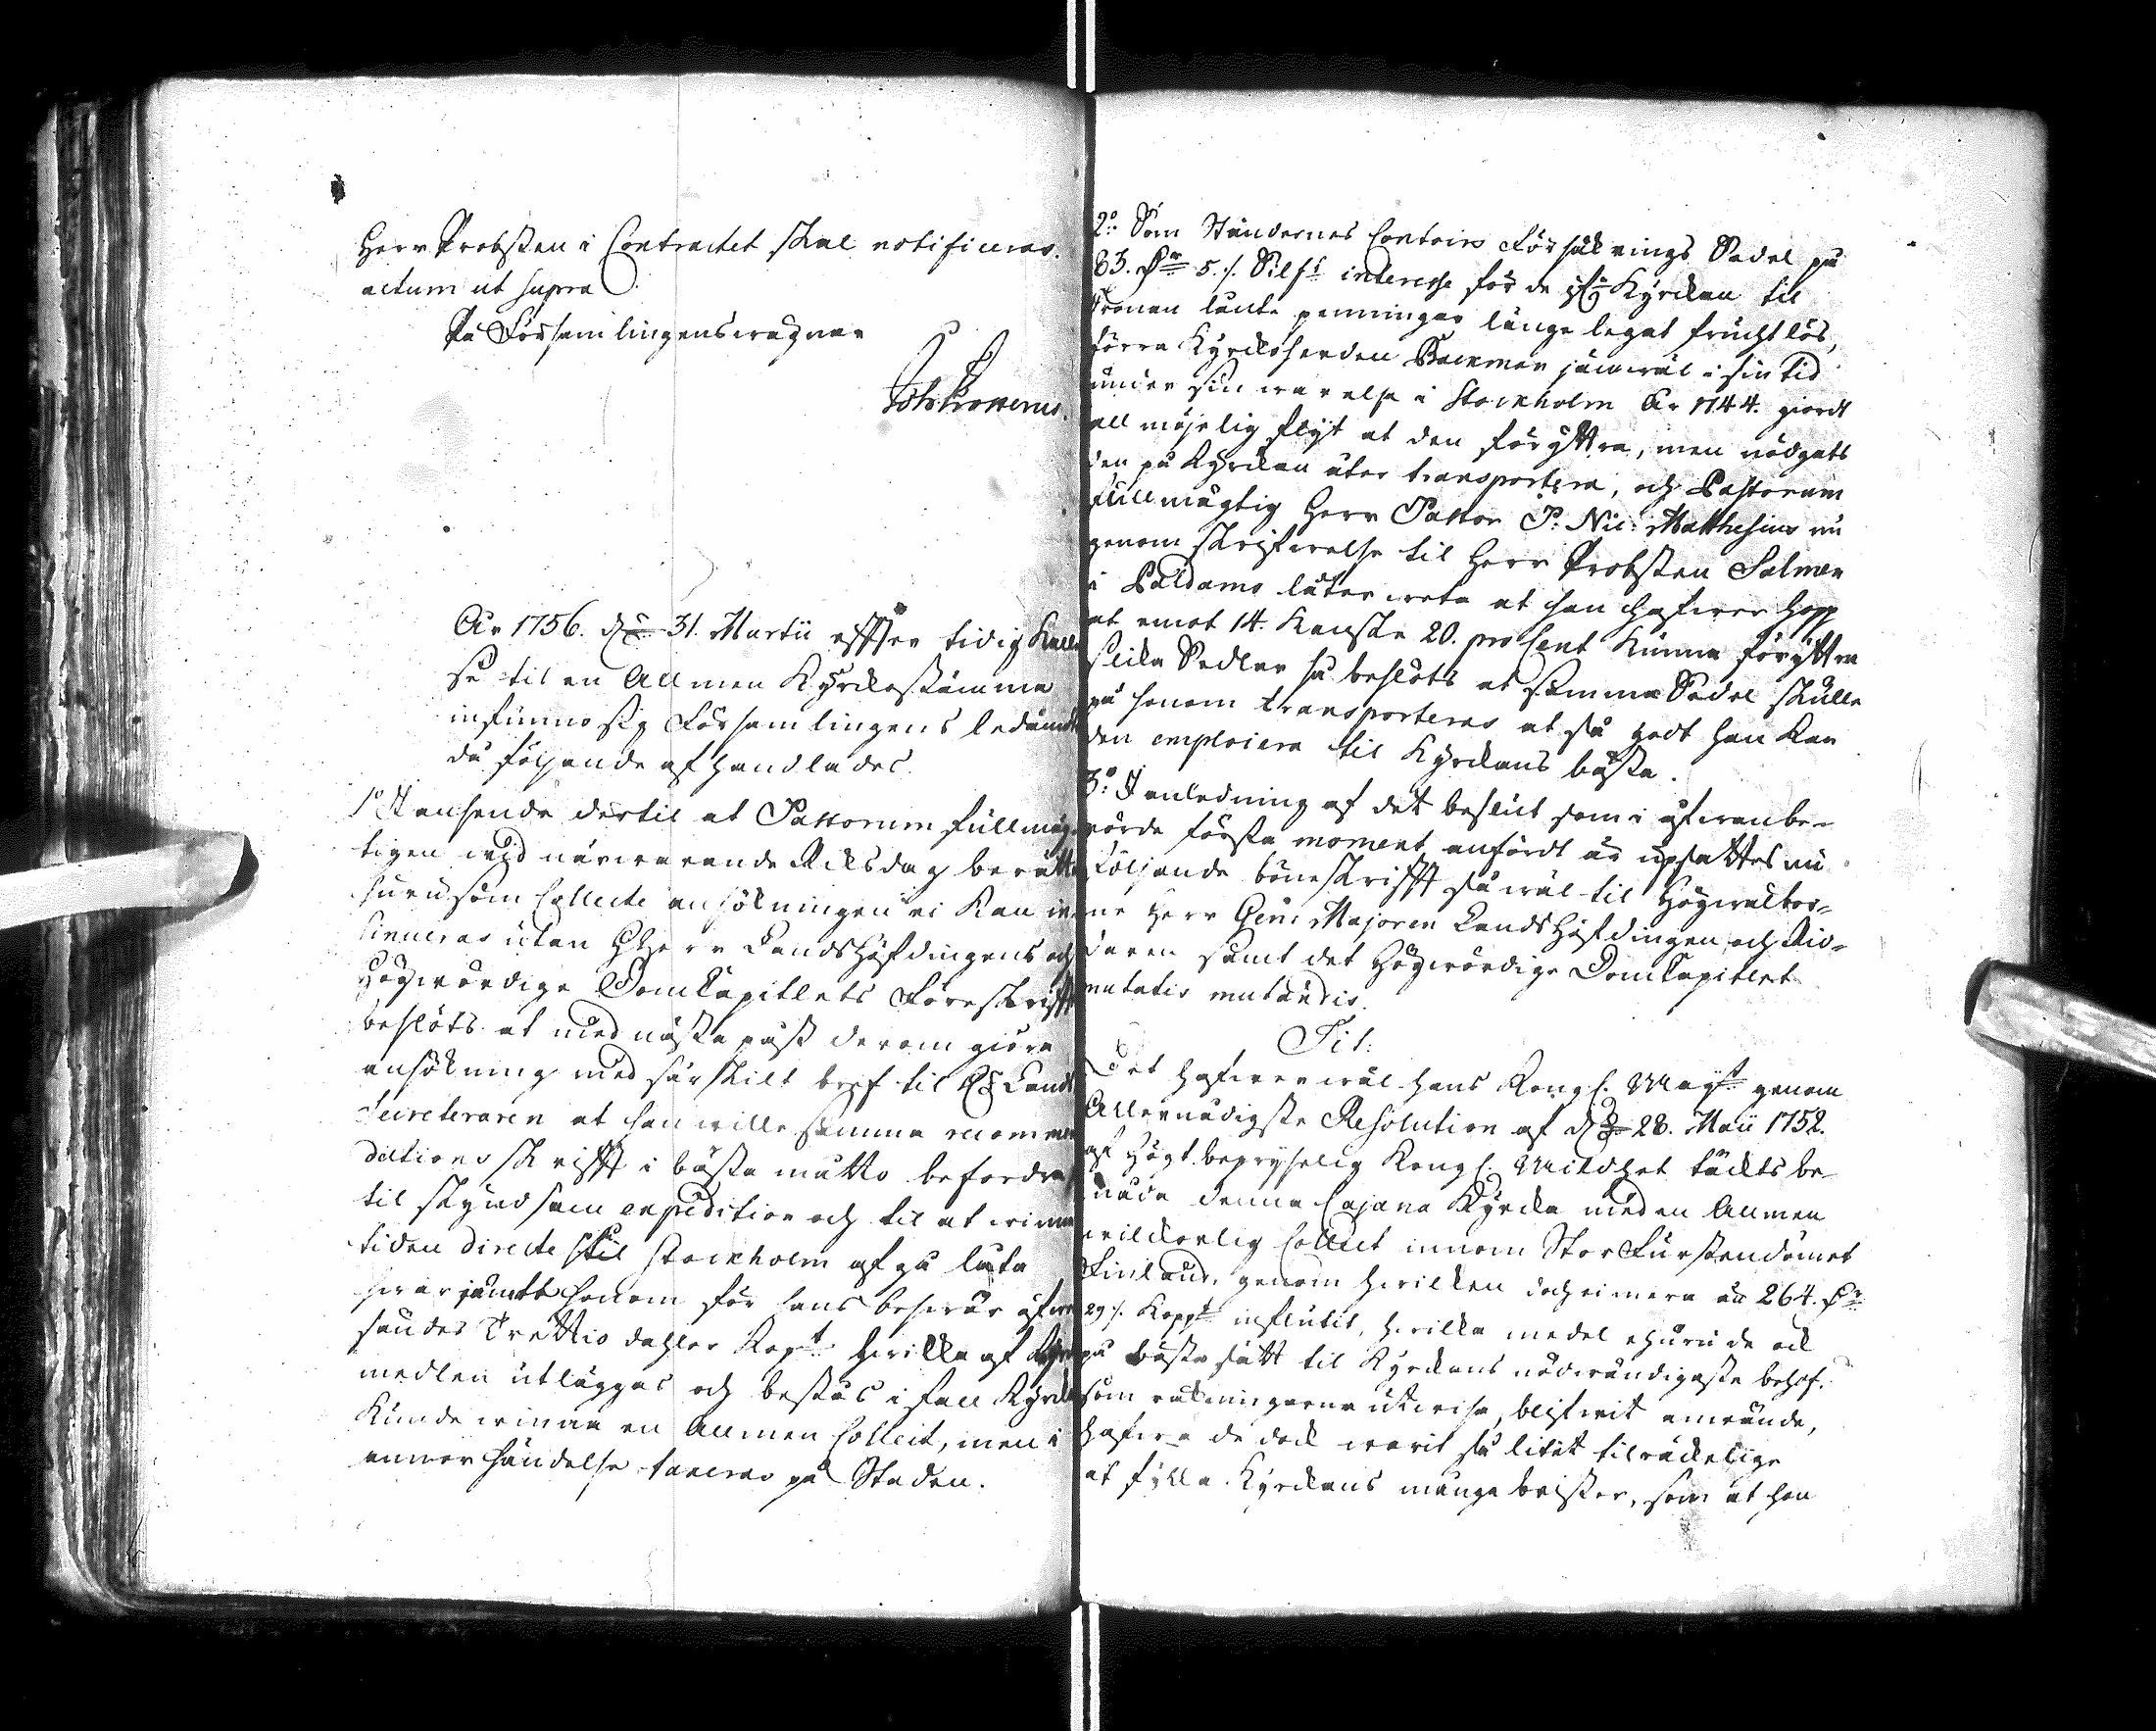 Herr Probsten i Contractet skal notificeras.
actum ut supra
På Församlingens wägnar
Ao 1756. d. 31. Martii efter tidig kallel
se til en Allmen Kyrckostämma
infunno sig Församlingens ledamöt
då följande afhandlades.
1o I anseende dertil at Pastorum fullmäg
tigen wid närwarande Riksdag berättat
huru som Collecte ansökningen ei kan in
sinueras utan Herr Landshöfdingens och
Högwördige Domkapitlets Föreskrifft
beslöts at med nästa påst derom giöra
ansökning med särskilt bref til Lands
Secreteraren at han wille samma recommen
dations skrifft i bästa måtto befordra
til skyndsam expedition och til at winna
tiden directe til Stockholm afgå låta
hwar jämte honom för hans beswär öfwer
sändes Trettio dahler Kopt. hwilka af Kyrcko
medlen utläggas och bestås i fall Kyrckan
kunde winna en Allmen Collect, men i
annor händelse taxeras på Staden.
2o Som Ständernes Contoirs Försäkrings Sedel på
83. Dr 5. /. Silf:t interesse för de af Kyrckan til
Kronan länte penningar länge legat fruchtlös,
förra Kyrckoherden Backman jämwäl i sin tid
under sin warelse i Stockholm Ao 1744. giordt
all möjelig flijt at den föryttra, men nödgats
den på Kyrckan åter transportera, och Pastorum
fullmägtig Herr Pastor P. Nic: Matthesius nu
genom skrifwelse til Herr Probsten Salmen
i Paldamo låter weta at han hafwer hopp
at emot 14. kanske 20. pro Cent kunna föryttra
slika Sedlar så beslöts at samma Sedel skulle
på honom transporteras at så godt han kan
den emploiera til Kyrckans bästa.
3o I anledning af det beslut som i ofwanbe-
rörde första moment anfördt är upsattes nu
följande böneskrifft så wäl til Högwälbor-
ne Herr Gen: Majoren Landshöfdingen och Rid-
daren samt det Högwördige Domkapitlet
mutatis mutandis.
Tit:
Det hafwer wäl hans Kongl. Mayst genom
Allernådigste Resolution af d. 28. Maii 1752.
af högt beprijselig Kongl. Mildhet täckts be-
nåda denna Cajana Kyrcka med en Allmen
wilckorlig Collect innom StorFurstendömet
Finland, genom hwilken doch ei mera än 264. Dr
29 /. Koppt influtit, hwilka medel ehuru de ock
på bästa sätt til Kyrckans nödwändigaste behof.
som räkningarne utwisa, blifwit använde,
hafwa de dock warit så litit tilräckelige
at fylla Kyrckans många brister, som at hon